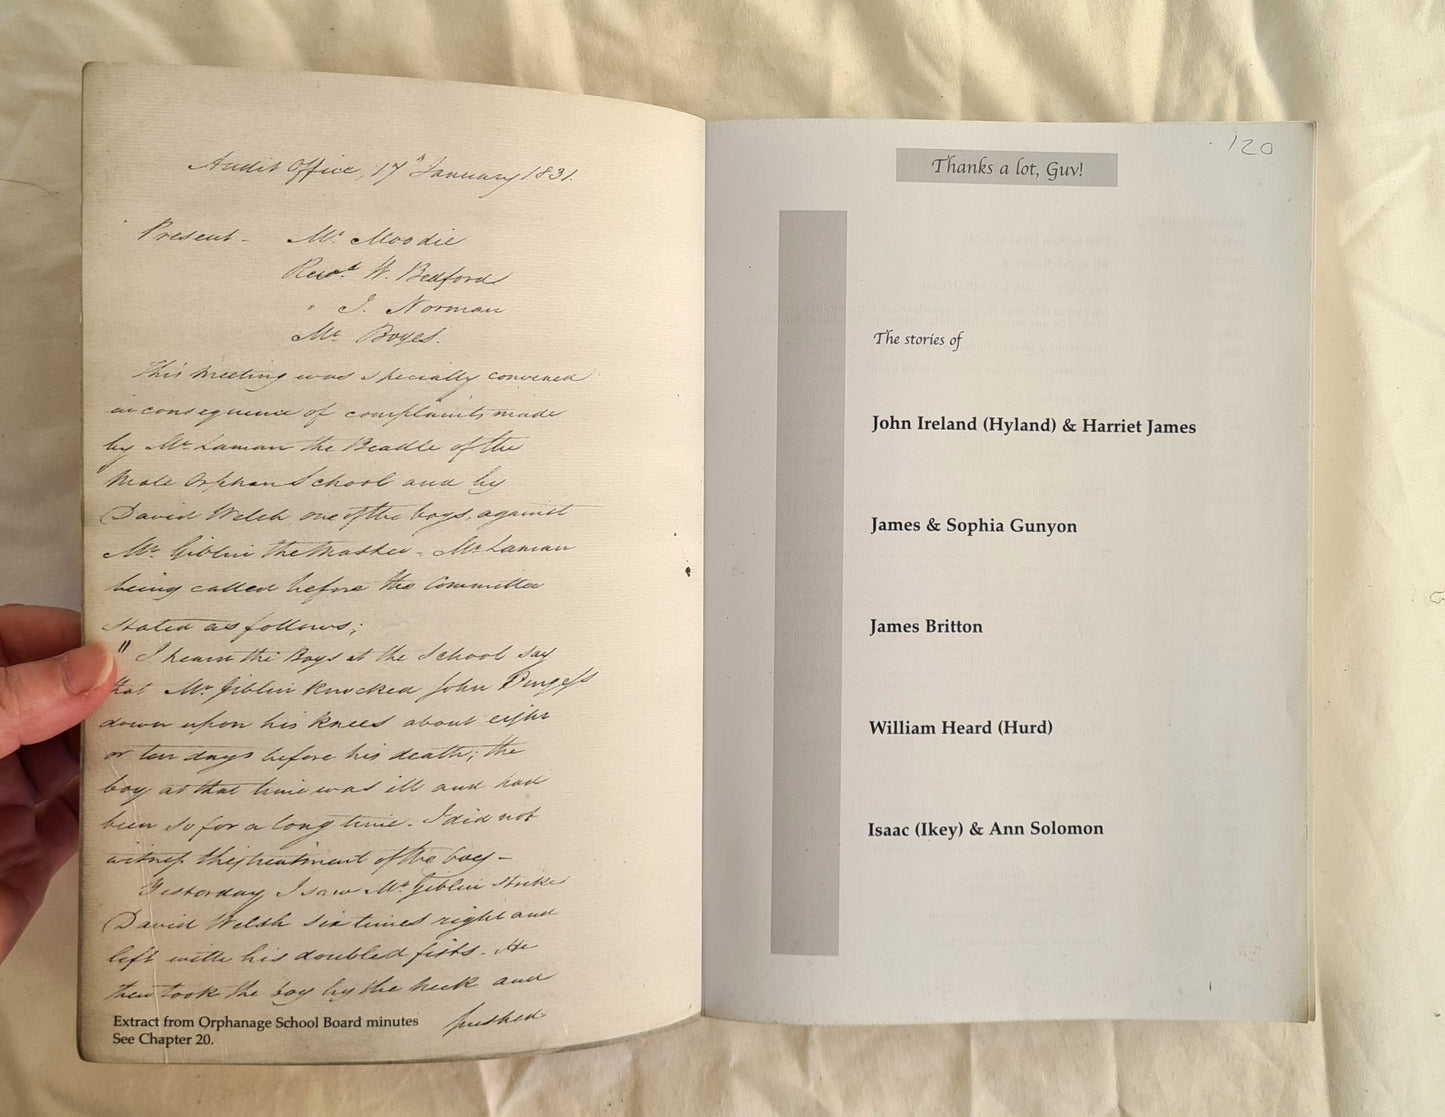 Audit Office, 17th January 1831.
Present - Mr Moodie
Revd. W. Bedford
" J. Norman
Mr Boyes.
This meeting was specially convened
in consequence of complaints made
by Mr Laman the Beadle of the
Male Orphan School and by
David Welsh, one of the boys, against
Mr Giblin the Master - Mr Laman
being called before the Committee
stated as follows;
" I heard the Boys at the School say
that Mr Giblin knocked John Burgess
down upon his knees about eight
or ten days before his death; the
boy at that time was ill and had
been so for a long time. I did not
witness this treatment of the boy -
Yesterday I saw Mr Giblin strike
David Welsh six times right and
left with his doubled fists. He
then took the boy by the neck and
pushed
Extract from Orphanage School Board minutes
See Chapter 20.
120
Thanks a lot, Guv!
The stories of
John Ireland (Hyland) & Harriet James
James & Sophia Gunyon
James Britton
William Heard (Hurd)
Isaac (Ikey) & Ann Solomon